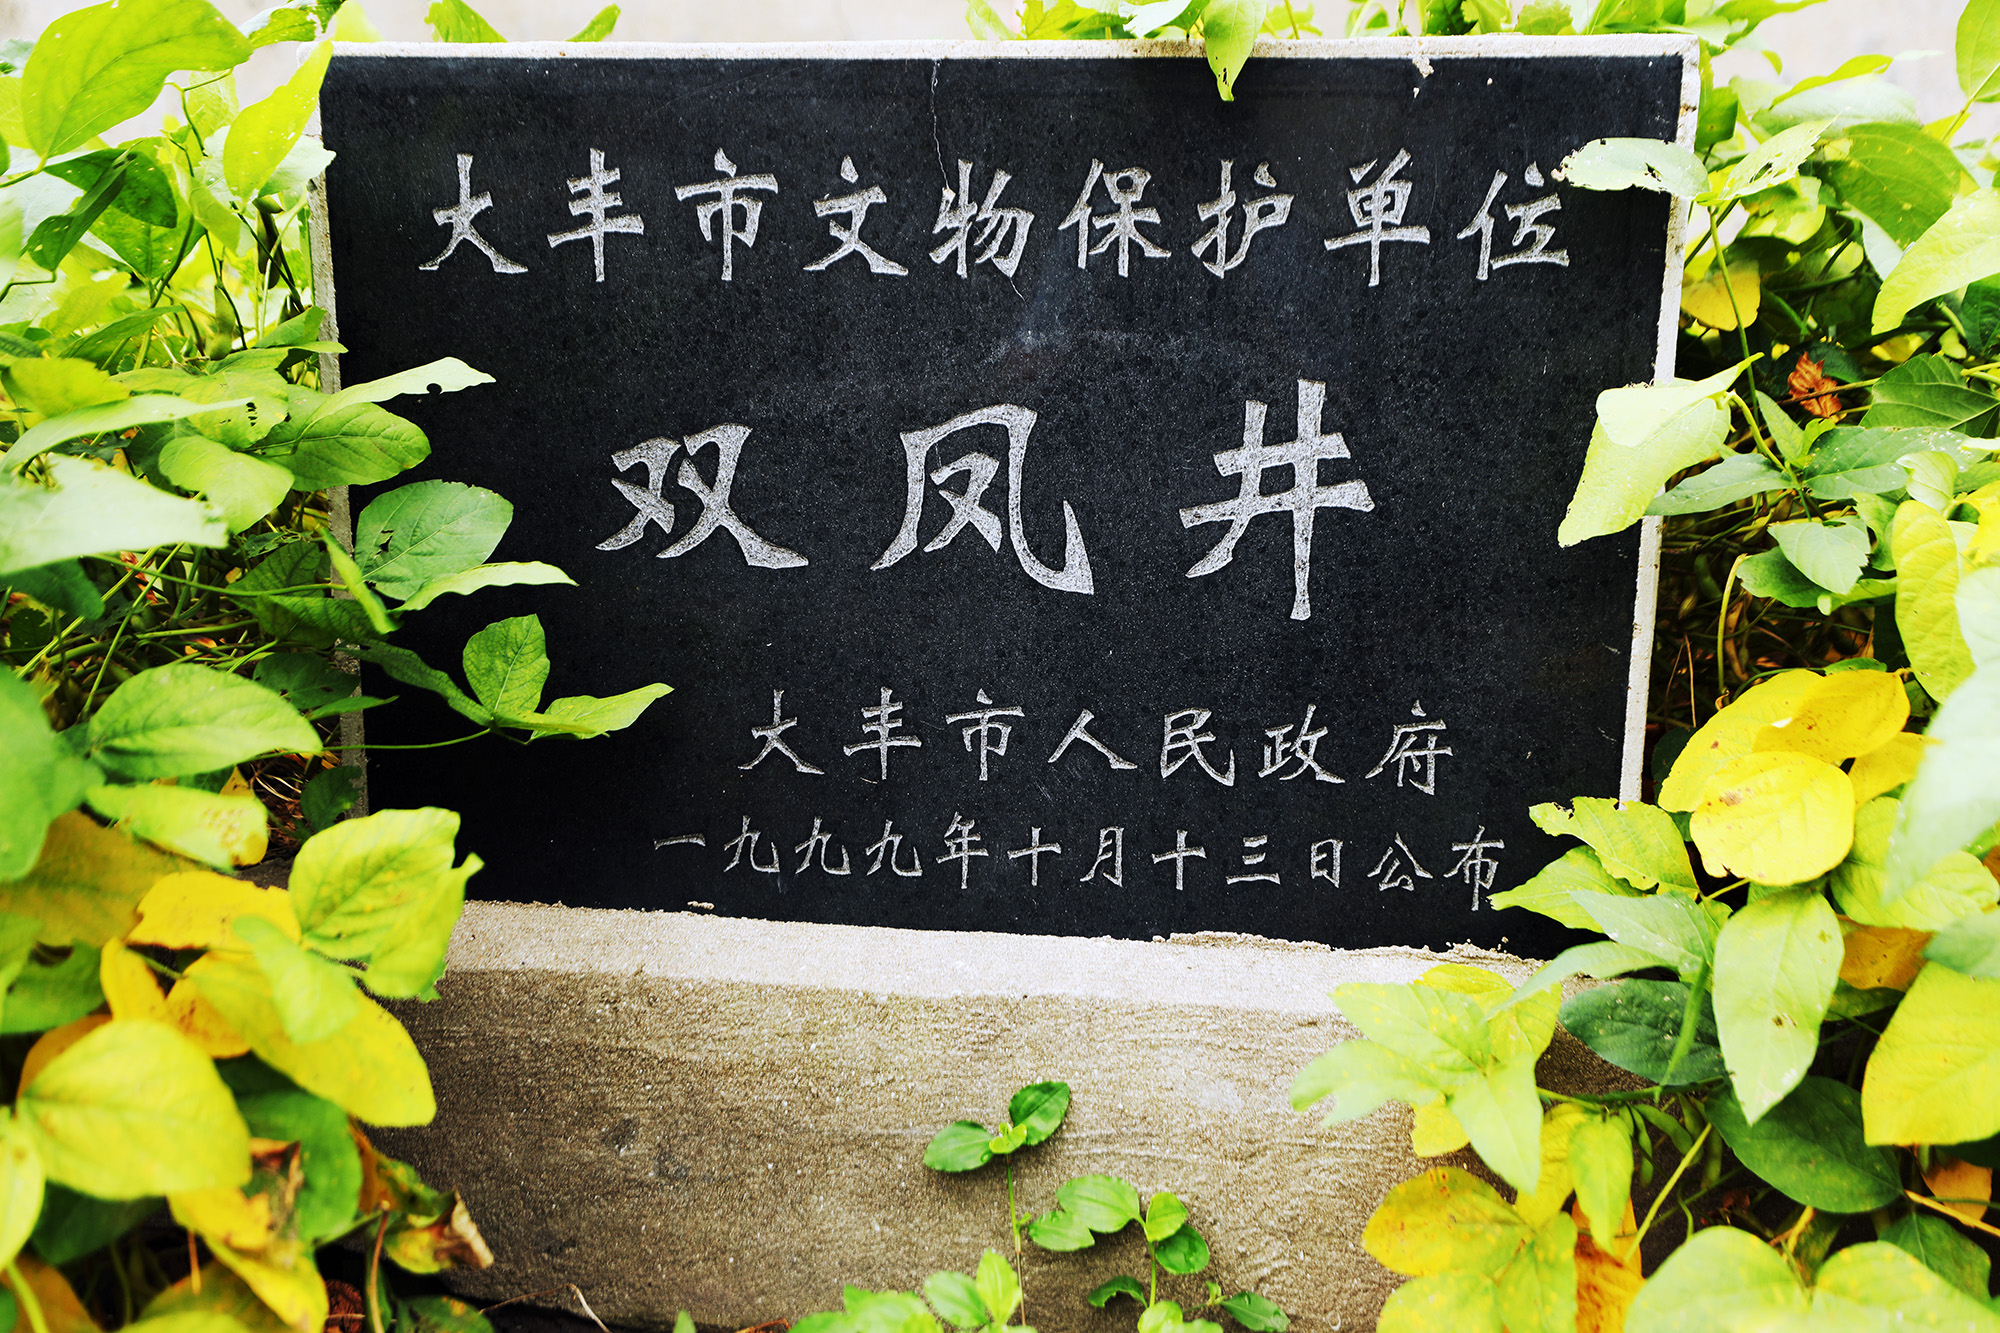 大丰市文物保护单位
双凤井
大丰市人民政府
一九九九年十月十三日公布